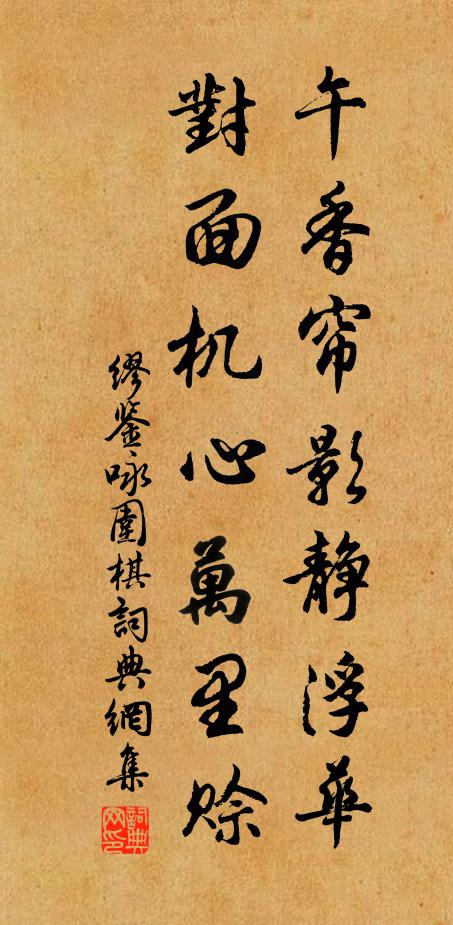 午香帘影静浮華
對面机心萬里賒
缪鉴咏圍棋詞典網集
詞典網印